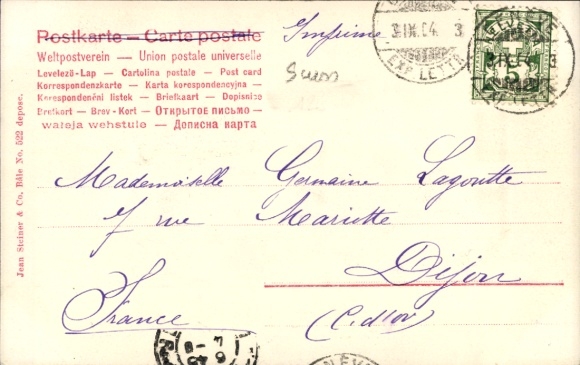 Postkarte — Carte postale
Weltpostverein — Union postale universelle
Levelező-Lap — Cartolina postale — Post card
Korrespondenzkarte — Karta korespondencyjna —
Korespondenční listek — Briefkaart — Dopisnice
Brefkort — Brev-Kort — Открытое письмо —
wareja wehstule — Дописна карта
Imprimé
Suiss
3.IX.04. 3
EXP. LETTR.
5
Jean Steiner & Co. Bâle No. 522 depose.
Mademoiselle Germaine Lagoutte
7 rue Mariotte
Dijon
France (C. d'or)